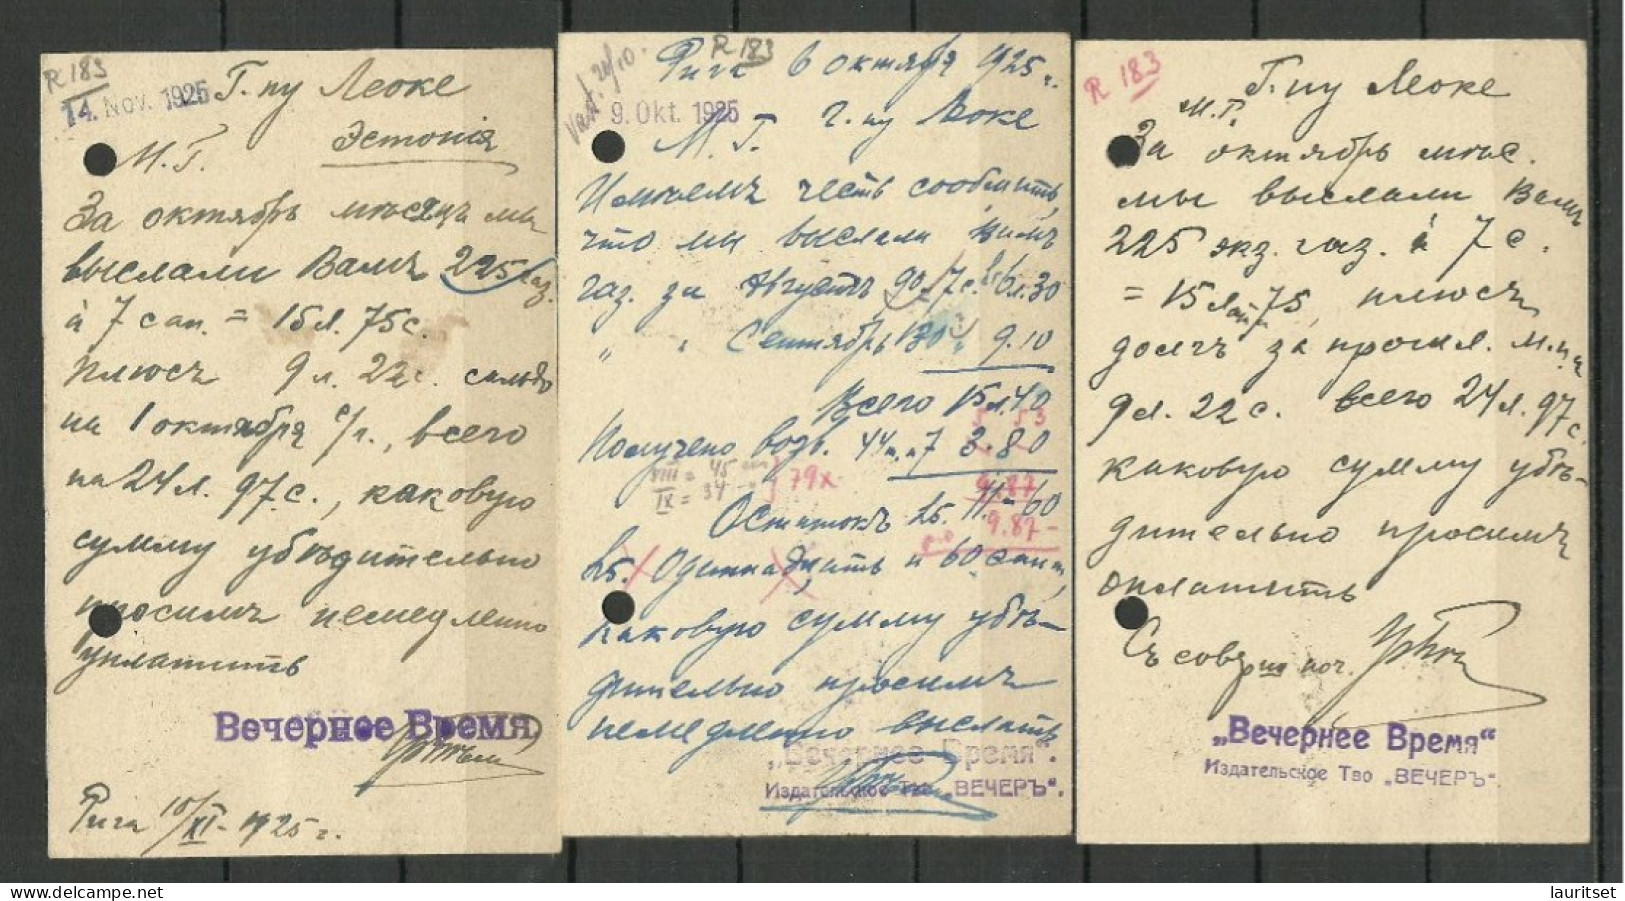 R 183
14. Nov. 1925
Г-ну Леоке
Эстонія
М.Г.
За октябрь мѣсяцъ мы
выслали Вамъ 225 газ.
à 7 сан. = 15л. 75с.
плюсъ 9 л. 22с. сальдо
на 1 октября с/г., всего
на 24л. 97с., каковую
сумму убѣдительно
просимъ немедленно
уплатить
Вечернее Время
Рига 10/XI - 1925 г.
R 183
Рига 6 октября 1925 г.
9. Okt. 1925
М. Г. г-ну Леоке
Имѣемъ честь сообщить,
что мы выслали Вамъ
газ. за Августъ 90 à 7с. Ls 6.30
" " Сентябрь 130 " 9.10
Всего 15л.40
5 53
Получено возвр. 44 3.80
VIII = 45
IX = 34
79x
9.87
Остатокъ Ls. 11.-60
9.87-
Ls. Одиннадцать и 60 сант.,
каковую сумму убѣ-
дительно просимъ
немедленно выслать
„Вечернее Время".
Издательское Тво „ВЕЧЕРЪ".
R 183
Г-ну Леоке
М.Г.
За октябрь мѣс.
мы выслали Вамъ
225 экз. газ. à 7 с.
= 15 Лат 75, плюсъ
долгъ за прошл. м-цъ
9л. 22с. всего 24л. 97с.
каковую сумму убѣ-
дительно просимъ
оплатить
Съ соверш. поч.
„Вечернее Время"
Издательское Тво „ВЕЧЕРЪ".
lauritset